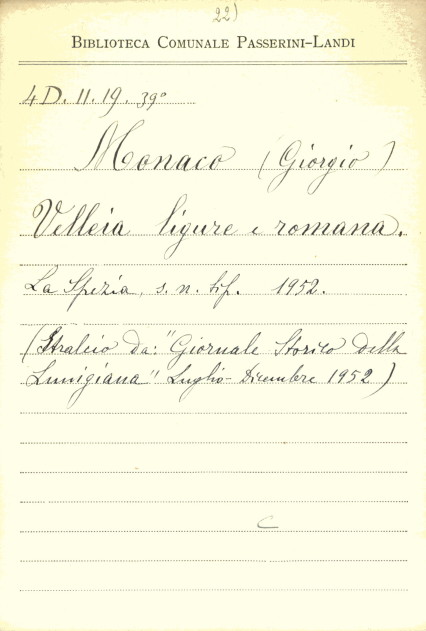 22)
BIBLIOTECA COMUNALE PASSERINI-LANDI
4D. 11. 19. 39°
Monaco (Giorgio)
Velleia ligure e romana.
La Spezia, s. n. tip. 1952.
(Stralcio da: "Giornale Storico della
Lunigiana" Luglio-Dicembre 1952)
C